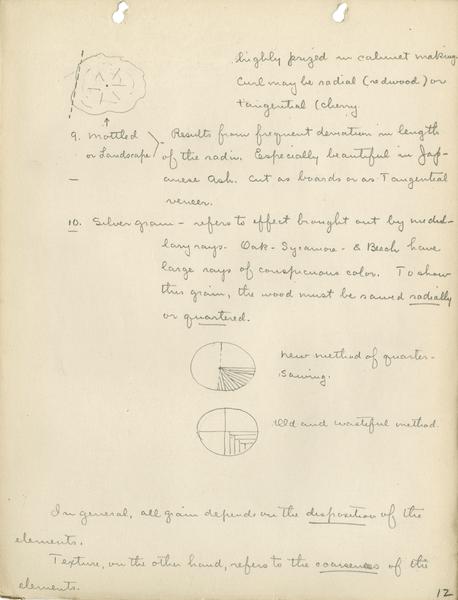 highly prized in cabinet making.
Curl may be radial (redwood) or
tangential (cherry.
9. Mottled
or Landscape } - Results from frequent deviation in length
of the radii. Especially beautiful in Jap-
anese Ash. Cut as boards or as Tangential
veneer.
10. Silver grain - refers to effect brought out by medul-
lary rays. Oak - Sycamore - & Beech have
large rays of conspicuous color. To show
this grain, the wood must be sawed radially
or quartered.
new method of quarter-
sawing.
Old and wasteful method.
In general, all grain depends on the disposition of the
elements.
Texture, on the other hand, refers to the coarseness of the
elements.
12